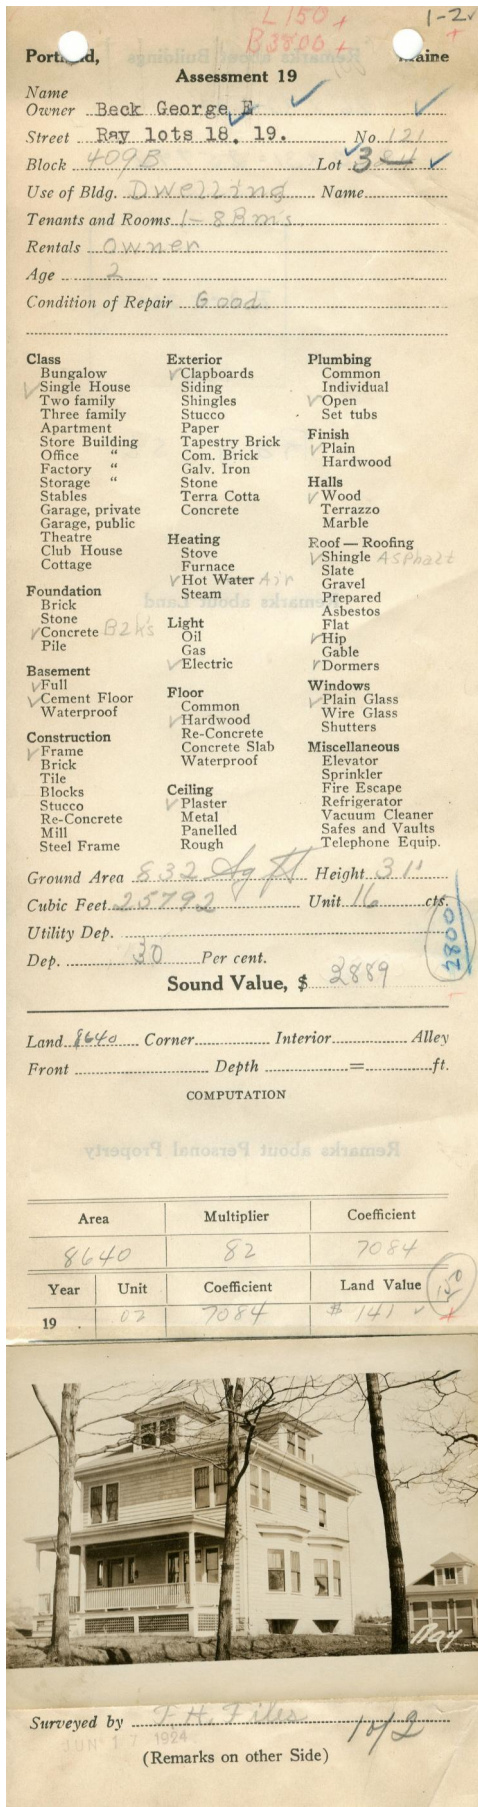 L 150 +
B 3800 +
1-2
Portland, Maine
Assessment 19
Name
Owner Beck George E
Street Ray lots 18, 19. No. 121
Block 409B Lot 3
Use of Bldg. Dwelling Name
Tenants and Rooms 1-8 Rms
Rentals Owner
Age 2
Condition of Repair Good
Class
Bungalow
✓ Single House
Two family
Three family
Apartment
Store Building
Office "
Factory "
Storage "
Stables
Garage, private
Garage, public
Theatre
Club House
Cottage
Foundation
Brick
Stone
✓ Concrete Blk's
Pile
Basement
✓ Full
✓ Cement Floor
Waterproof
Construction
✓ Frame
Brick
Tile
Blocks
Stucco
Re-Concrete
Mill
Steel Frame
Exterior
✓ Clapboards
Siding
Shingles
Stucco
Paper
Tapestry Brick
Com. Brick
Galv. Iron
Stone
Terra Cotta
Concrete
Heating
Stove
Furnace
✓ Hot Water Air
Steam
Light
Oil
Gas
✓ Electric
Floor
Common
✓ Hardwood
Re-Concrete
Concrete Slab
Waterproof
Ceiling
✓ Plaster
Metal
Panelled
Rough
Plumbing
Common
Individual
✓ Open
Set tubs
Finish
✓ Plain
Hardwood
Halls
✓ Wood
Terrazzo
Marble
Roof — Roofing
✓ Shingle Asphalt
Slate
Gravel
Prepared
Asbestos
Flat
✓ Hip
Gable
✓ Dormers
Windows
✓ Plain Glass
Wire Glass
Shutters
Miscellaneous
Elevator
Sprinkler
Fire Escape
Refrigerator
Vacuum Cleaner
Safes and Vaults
Telephone Equip.
Ground Area 832 Sq Ft Height 31'
Cubic Feet 25792 Unit 16 cts.
Utility Dep.
2800
Dep. 30 Per cent.
Sound Value, $ 2889
Land 8640 Corner Interior Alley
Front Depth = ft.
COMPUTATION
Remarks about Personal Property
Area Multiplier Coefficient
8640 82 7084
Year Unit Coefficient Land Value 150
19 . 02 7084 $ 141 ✓ +
Ray
Surveyed by F. H. Files
JUN 17 1924
(Remarks on other Side)